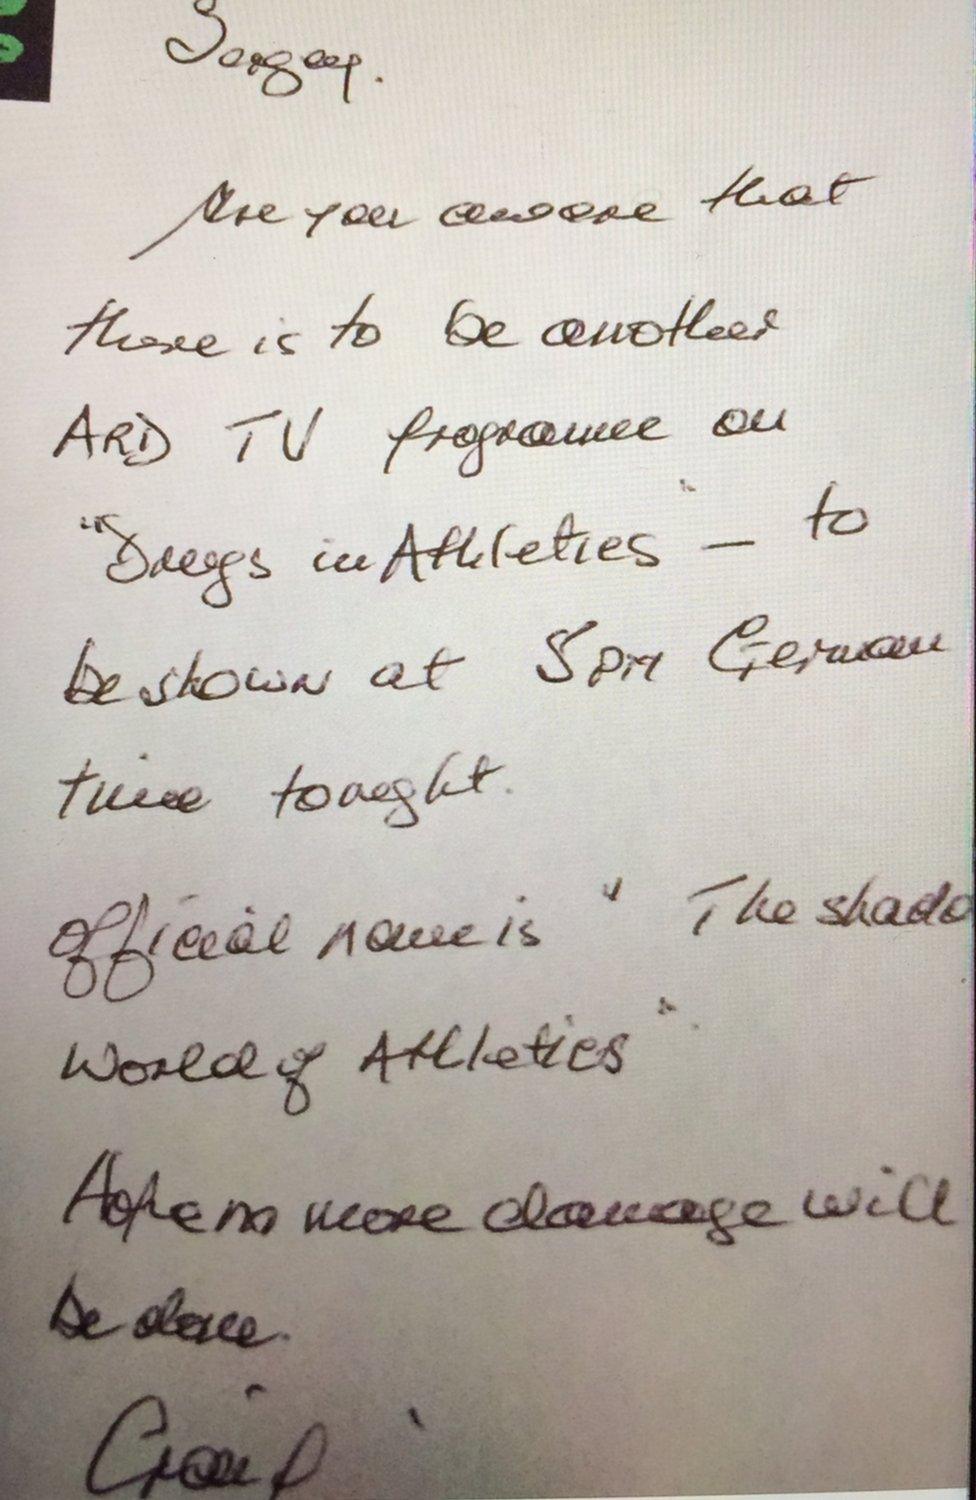 Sergey.
Are you aware that
there is to be another
ARD TV programme on
"Drugs in Athletics" — to
be shown at 5pm German
time tonight.
Official name is " The shado
World of Athletics".
Hope no more damage will
be done.
Craig